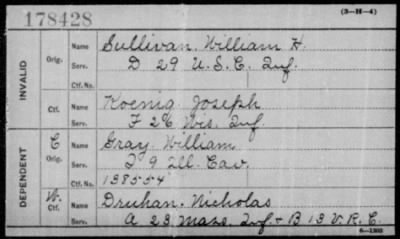 178428
(3-H-4)
INVALID
DEPENDENT
Orig.
Name Sullivan, William H.
Serv. D 29 U.S.C. Inf.
Ctf. No.
Ctf.
Name Koenig Joseph
Serv. F 26 Wis. Inf
C
Orig.
Name Gray William
Serv. I 9 Ill. Cav.
Ctf. No. 138554
W.
Ctf.
Name Druhan Nicholas
Serv. A 23 Mass. Inf + B 13 V.R.C.
6-1303